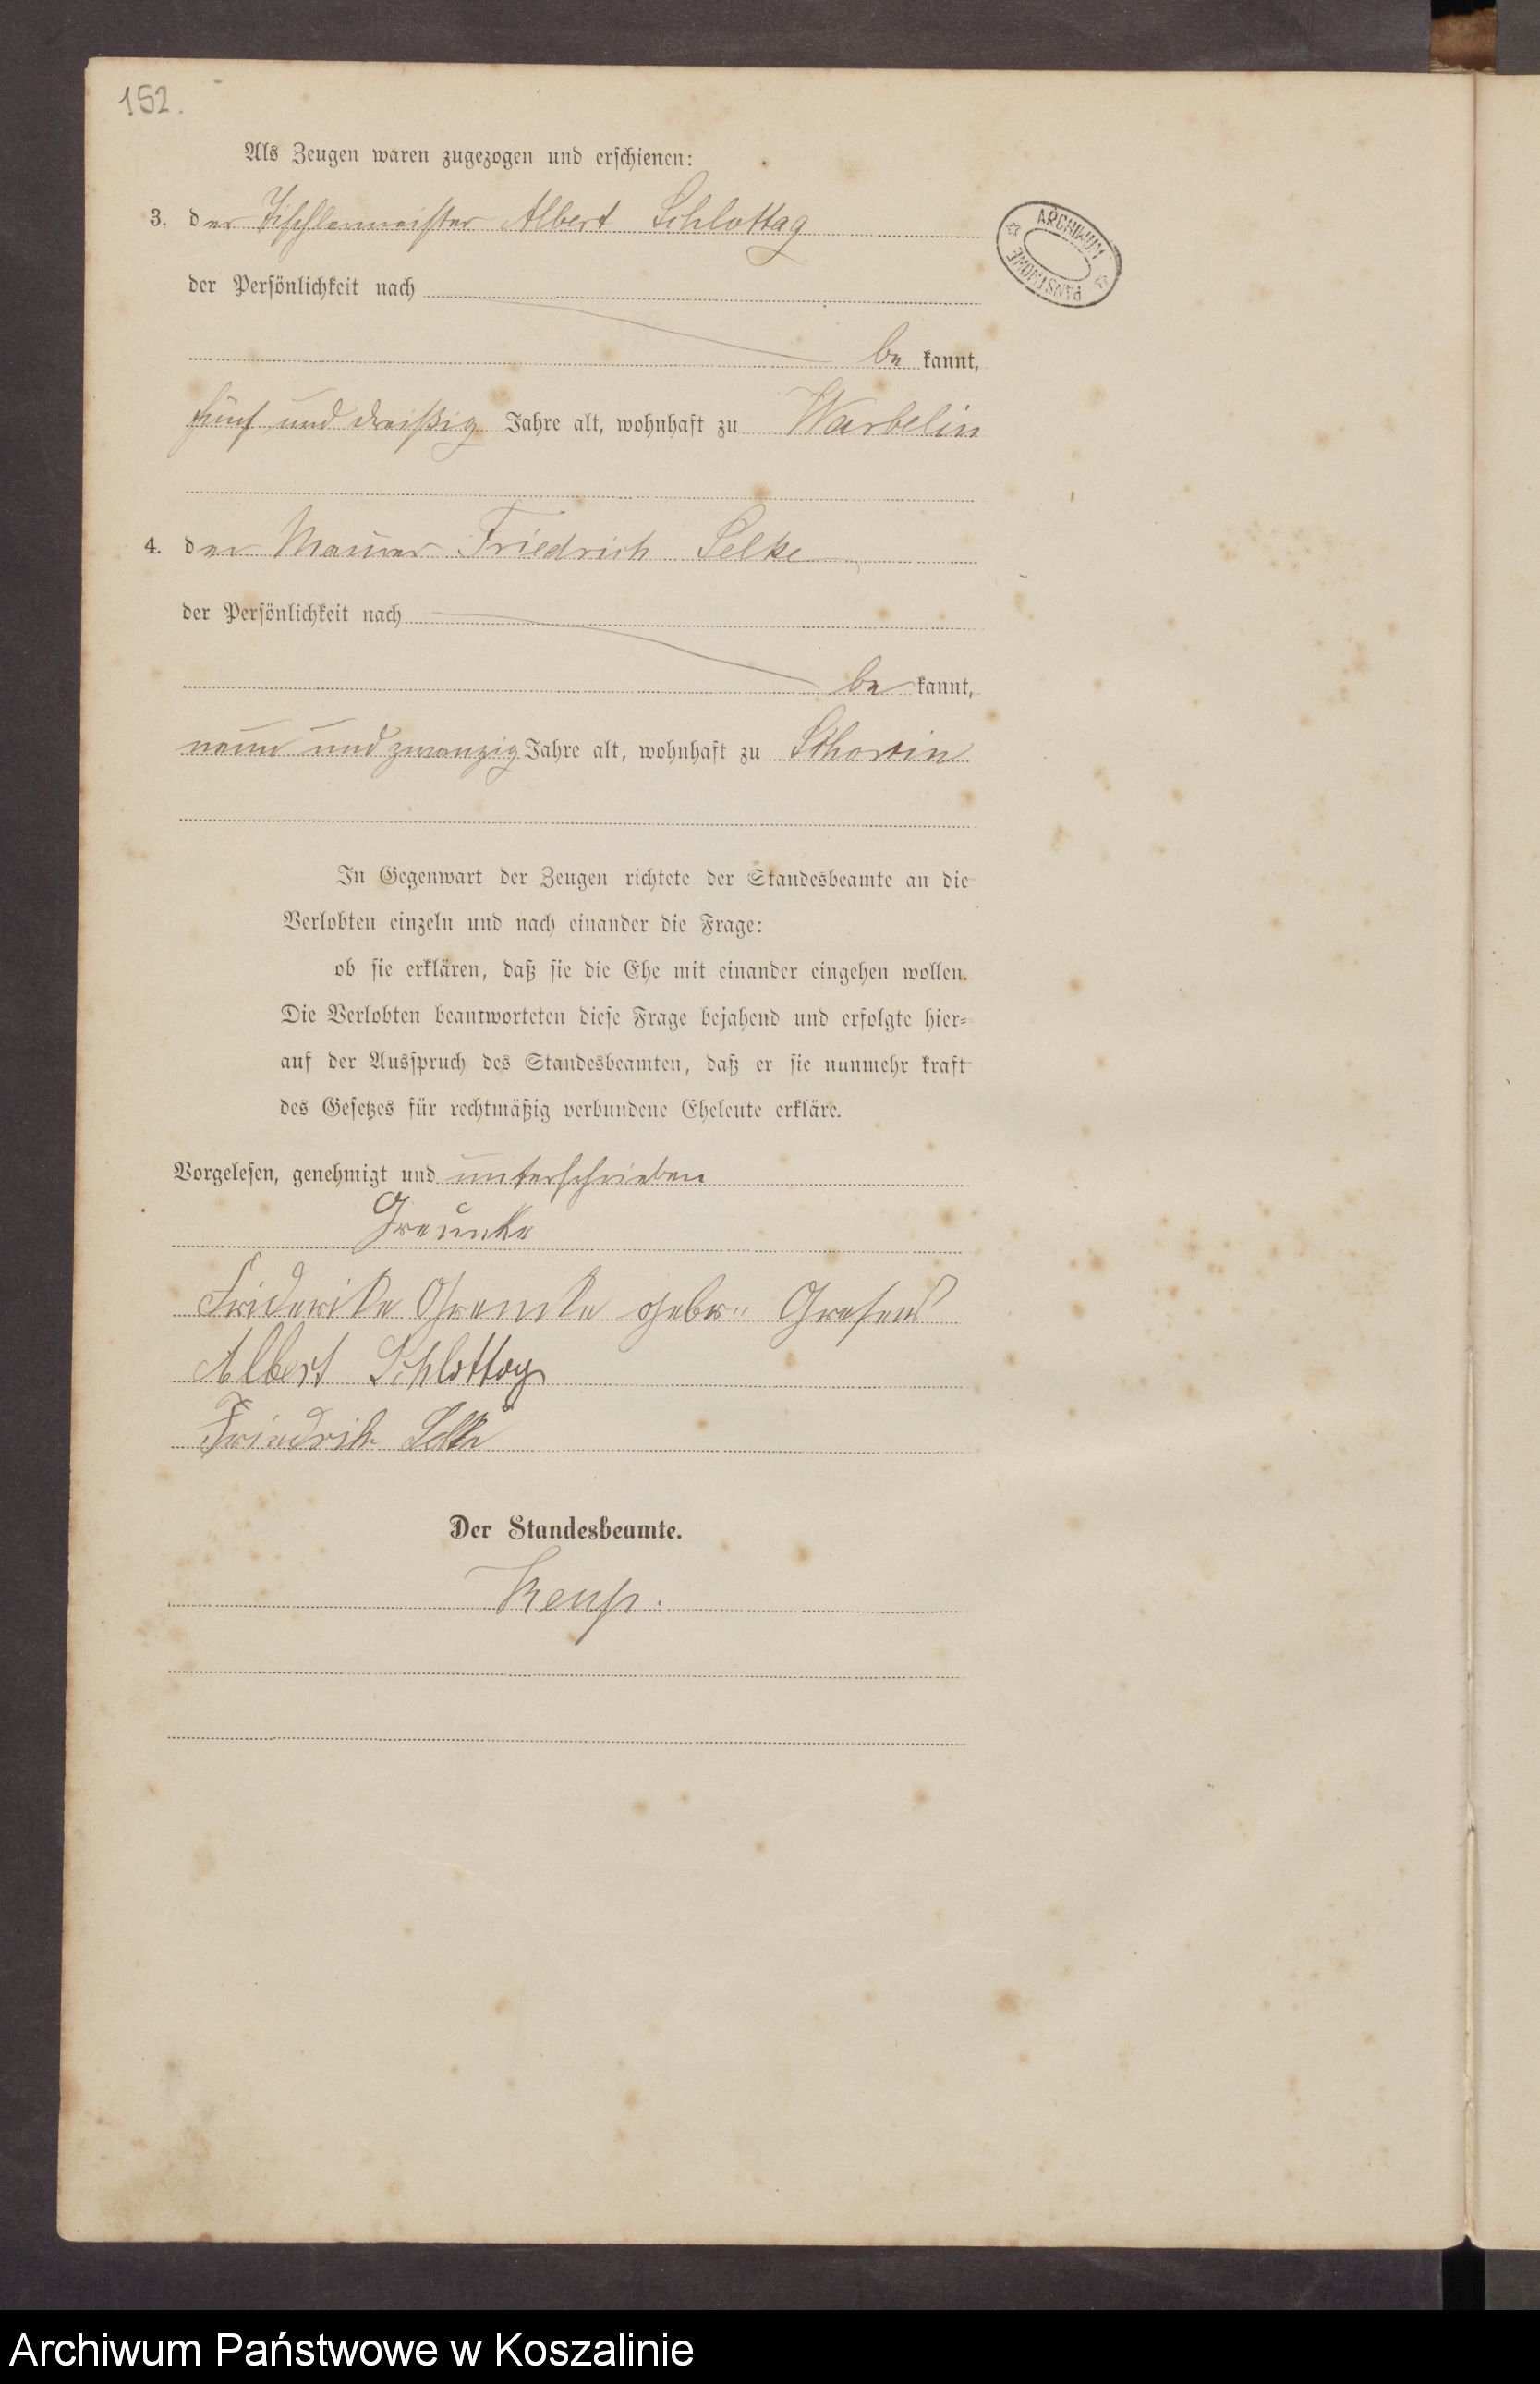 152.
Als Zeugen waren zugezogen und erschienen:
3. der Tischlermeister Albert Schlottag
der Persönlichkeit nach
be kannt,
fünf und dreißig Jahre alt, wohnhaft zu Warbelin
4. der Maurer Friedrich Selke
der Persönlichkeit nach
be kannt,
neun und zwanzig Jahre alt, wohnhaft zu Schorin
In Gegenwart der Zeugen richtete der Standesbeamte an die
Verlobten einzeln und nach einander die Frage:
ob sie erklären, daß sie die Ehe mit einander eingehen wollen.
Die Verlobten beantworteten diese Frage bejahend und erfolgte hier=
auf der Ausspruch des Standesbeamten, daß er sie nunmehr kraft
des Gesetzes für rechtmäßig verbundene Eheleute erkläre.
Vorgelesen, genehmigt und unterschrieben
Greunke
Friderike Greunke gebr.
Albert Schlottag
Friedrich Selke
Der Standesbeamte.
ARCHIWUM PAŃSTWOWE
Archiwum Państwowe w Koszalinie